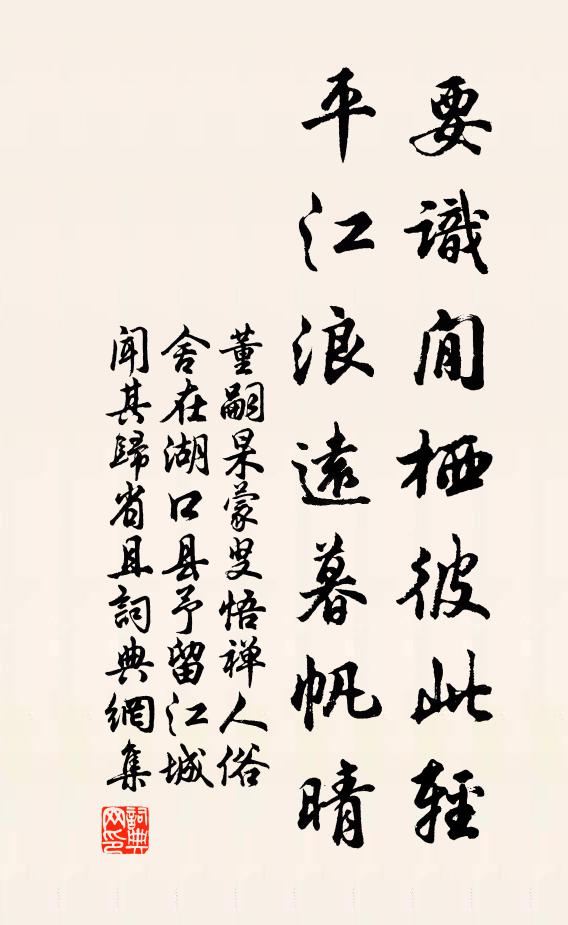 要識閒栖彼此輕
平江浪遠暮帆晴
董嗣杲蒙叟悟禅人俗
舍在湖口县予留江城
闻其歸省且詞典網集
詞典網印